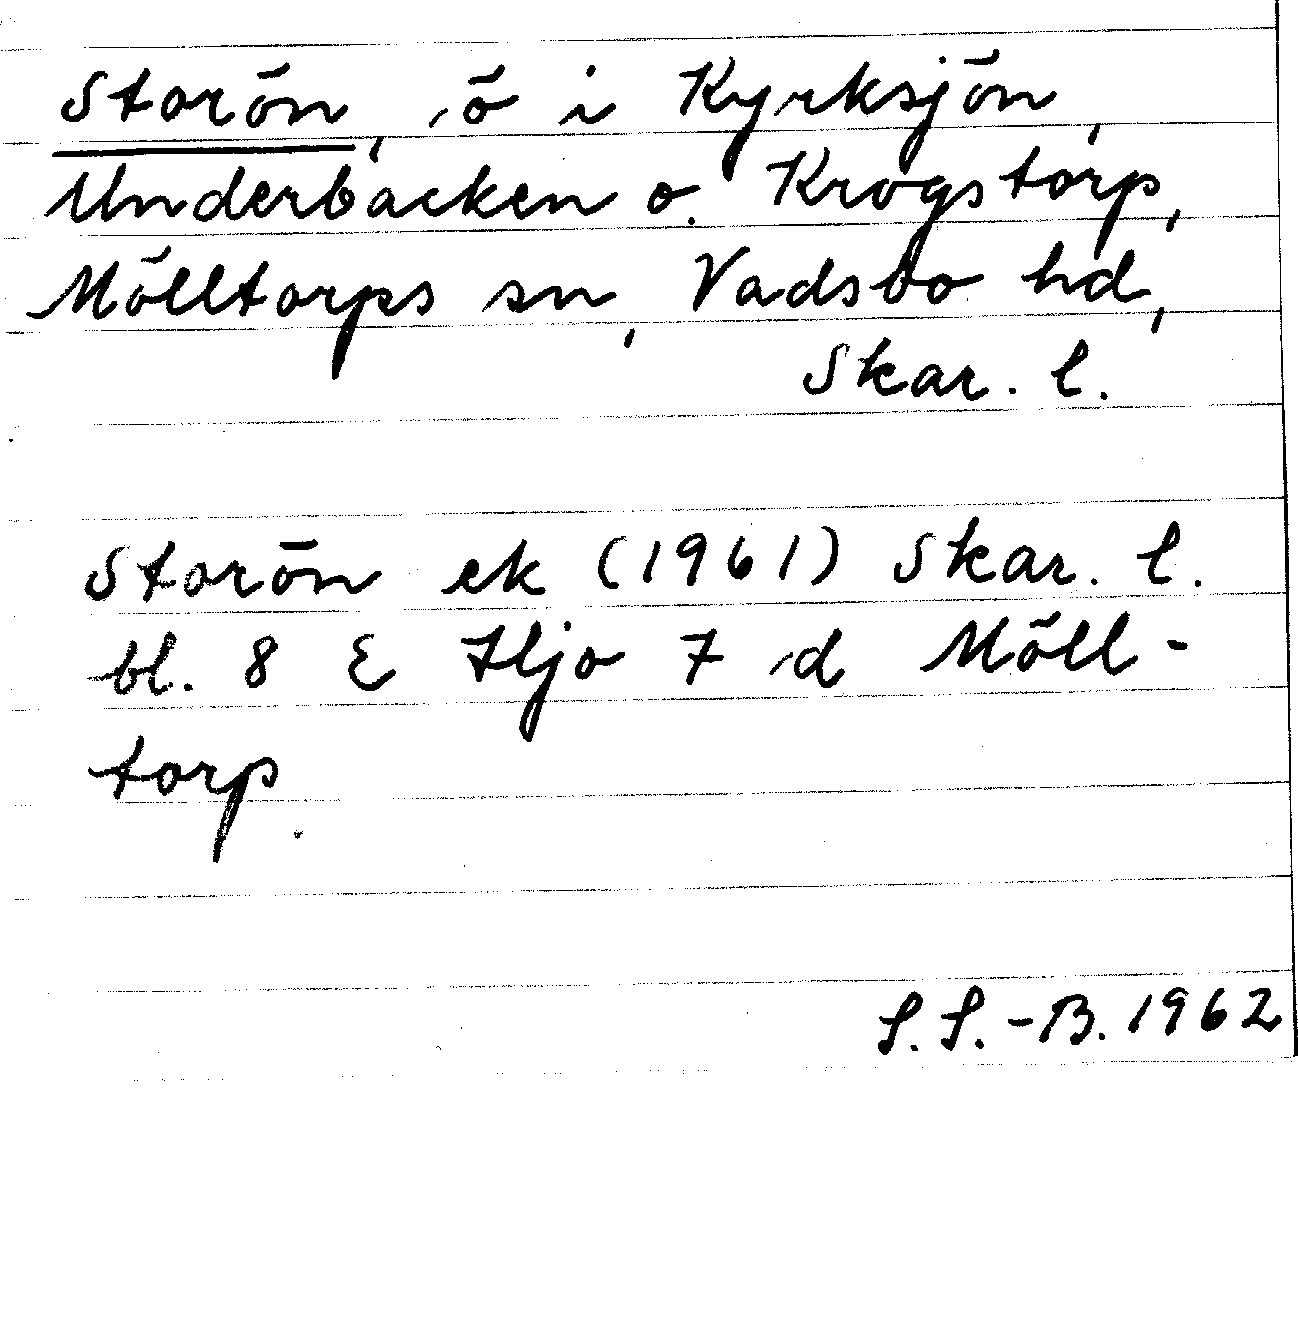 Storön, ö i Kyrksjön,
Underbacken o. Krogstorp,
Mölltorps sn, Vadsbo hd,
Skar. l.
Storön ek (1961) Skar. l.
bl. 8 E Hjo 7 d Möll-
torp.
S. S.-B. 1962